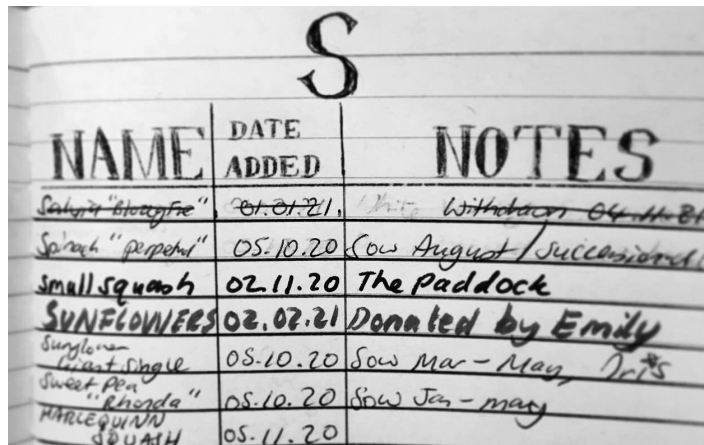 S
NAME DATE ADDED NOTES
01.01.21. Withdrawn 04.11.21
Spinach "perpetual" 05.10.20 Sow August / successional
small squash 02.11.20 The Paddock
SUNFLOWERS 02.02.21 Donated by Emily
Sunflower
Giant Single 05.10.20 Sow Mar - May,
Sweet Pea
"Rhonda" 05.10.20 Sow Jan - may
HARLEQUINN
SQUASH 05.11.20